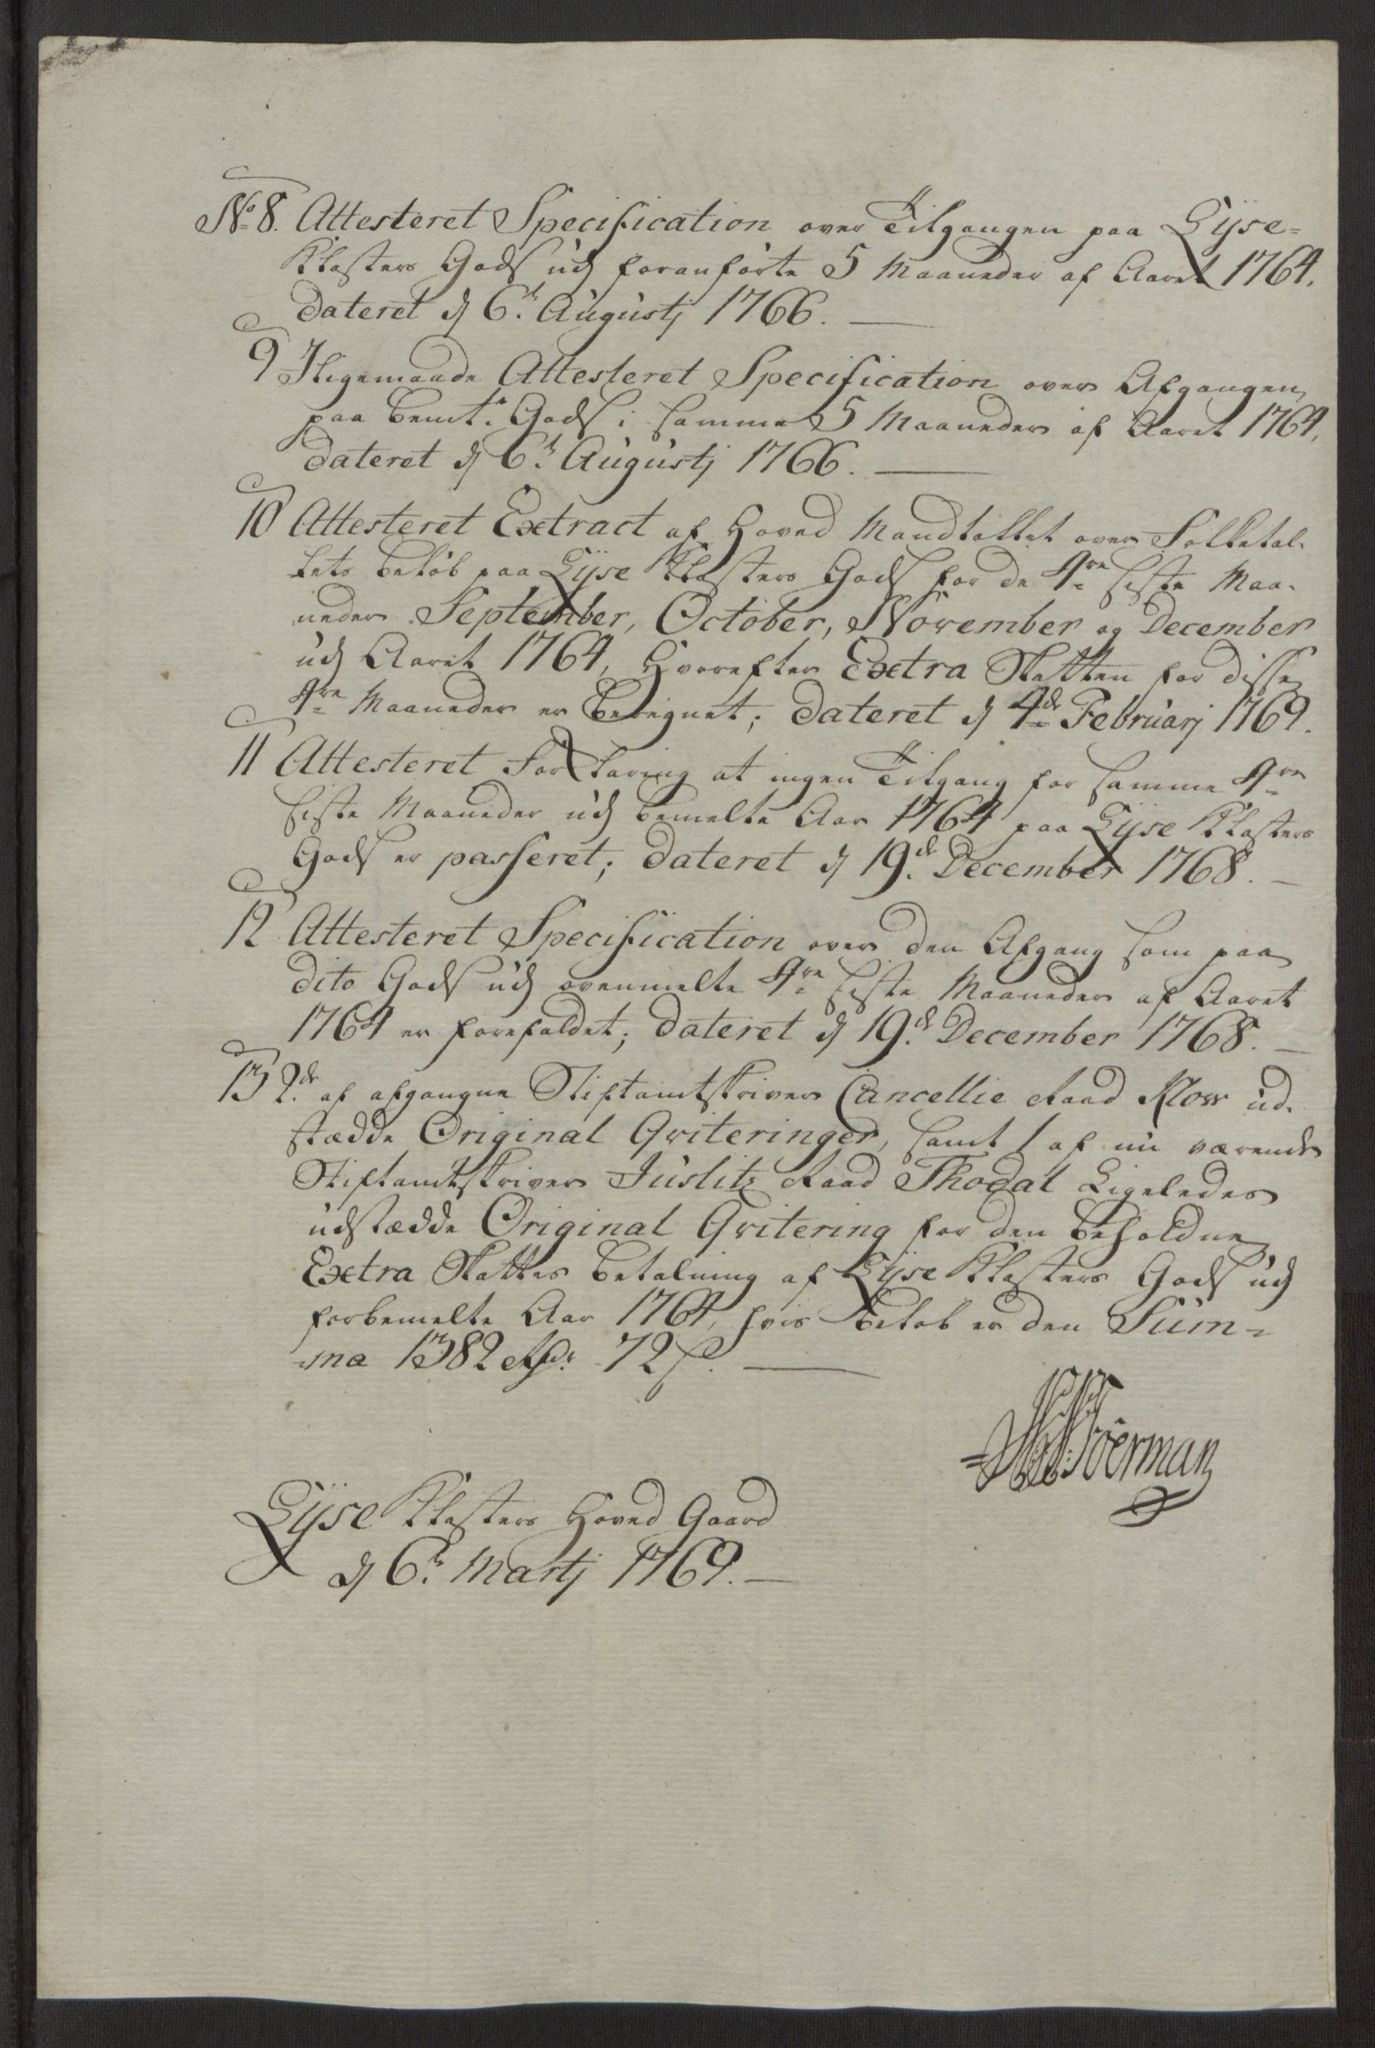 No 8. Attesteret Specification over Tilgangen paa Lyse-
Klosters Gods udj foranförte 5 Maaneder af Aaret 1764.
dateret d 6t. Augustj 1766.
9 Iligemaade Attesteret Specification over Afgangen
paa bemt. Gods i samme 5 Maaneder af Aaret 1764,
dateret d 6t. Augustj 1766.
10 Attesteret Extract af Hoved Mandtallet over Folketal-
lets beløb paa Lyse Klosters Gods for de 4re siste Maa-
neder September, October, November og December
udj Aaret 1764, hvorefter Extra Skatten for disse
4re Maaneder er beregnet; dateret d 4de Februarj 1769.
11 Attesteret Forklaring at ingen Tilgang for samme 4re
siste Maaneder udj bemelte Aar 1764 paa Lyse Klosters
Gods er passeret; dateret d 19d. December 1768.
12 Attesteret Specification over den Afgang som paa
dito Gods udj ovenmelte 4re siste Maaneder af Aaret
1764 er forefaldet; dateret d 19d. December 1768.
13 2de. af afgangne Stiftamtskriver Cancellie Raad Klow ud-
stædde Original Qviteringer, samt 1 af nu værende
Stiftamtskriver Justitz Raad Thodal Ligeledes
udstædde Original Qvitering for den beholdne
Extra Skattes betalning af Lyse Klosters Gods udj
forbemelte Aar 1764, hvis beløb er den Sum-
-ma 1382 Rdr. 72 s.
Formann
Lyse Klosters Hoved Gaard
d 6t. Martj 1769.